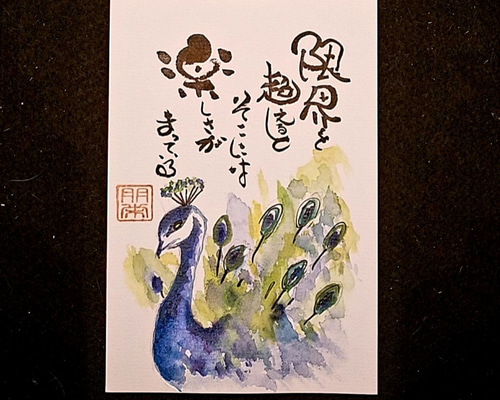 限界を
超えると
そこには
楽しさが
まっている